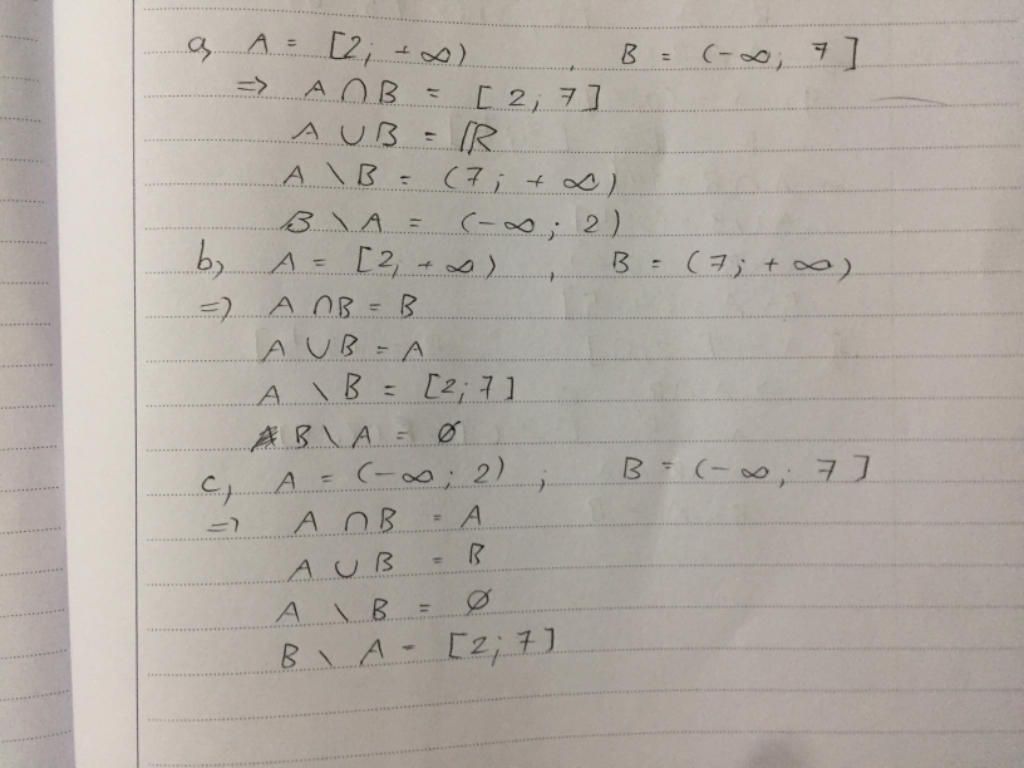 a, A = [2; +∞) , B = (-∞; 7]
=> A ∩ B = [2; 7]
A ∪ B = ℝ
A \ B = (7; +∞)
B \ A = (-∞; 2)
b, A = [2; +∞) , B = (7; +∞)
=> A ∩ B = B
A ∪ B = A
A \ B = [2; 7]
B \ A = ∅
c, A = (-∞; 2) ; B = (-∞; 7]
=> A ∩ B = A
A ∪ B = B
A \ B = ∅
B \ A = [2; 7]